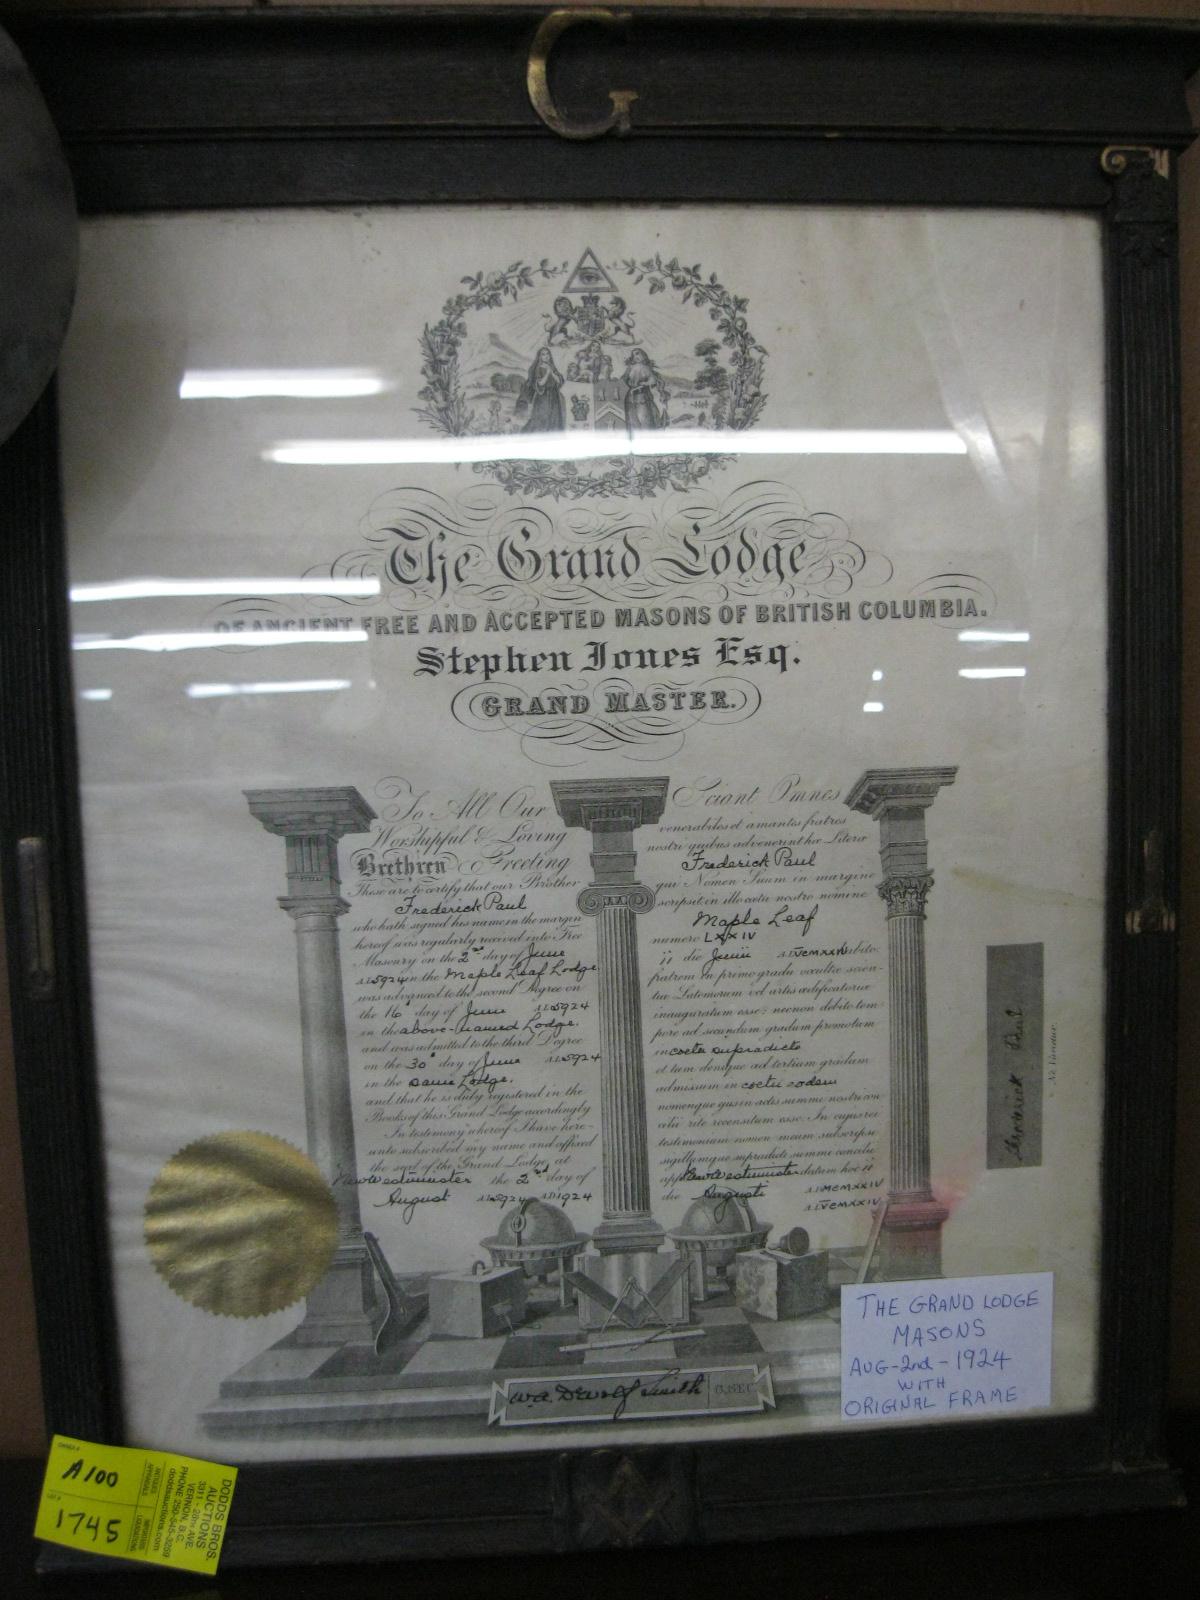 G
The Grand Lodge
OF ANCIENT FREE AND ACCEPTED MASONS OF BRITISH COLUMBIA.
Stephen Jones Esq.
GRAND MASTER.
To All Our
Worshipful & Loving
Brethren Greeting
These are to certify that our Brother
Frederick Paul
who hath signed his name in the margin
hereof was regularly received into Free
Masonry on the 2nd day of June
A.L.5924 in the Maple Leaf Lodge
was advanced to the second Degree on
the 16 day of June A.L.5924
in the above-named Lodge.
and was admitted to the third Degree
on the 30 day of June A.L.5924
in the same Lodge.
and that he is duly registered in the
Books of this Grand Lodge accordingly
In testimony whereof I have here-
unto subscribed my name and affixed
the seal of the Grand Lodge, at
New Westminster the 2nd day of
August A.L.5924 A.D.1924
Sciant Omnes
venerabiles et amantes fratres
nostri quibus advenerint hæ Literæ
Frederick Paul
qui Nomen Suum in margine
scripsit in illo cœtu nostro nomine
Maple Leaf
numero LXXIV
ii die Junii
fratrem in primo gradu occultæ scien-
tiæ Latomorum vel artis ædificatoriæ
inauguratum esse: necnon debito tem-
pore ad secundum gradum promotum
in coetu supradicto
et tum denique ad tertium gradum
admissum in coetu eodem
nomenque ejus in actis summe nostri con-
cilii rite recensitum esse. In cujus rei
testimonium nomen meum subscripsi
sigillumque supradicti summi concilii
New Westminster datum hoc ii
die Augusti A.D.MCMXXIV
A.L.VCMXXIV
Frederick Paul
Ne Varietur
W.A. DeWolf Smith G. SEC.
THE GRAND LODGE
MASONS
AUG-2nd-1924
WITH
ORIGINAL FRAME
A100
1745
DODDS BROS.
AUCTIONS
3311 - 28TH AVE.
VERNON, B.C.
PHONE 250-545-3259
doddsauctions.com